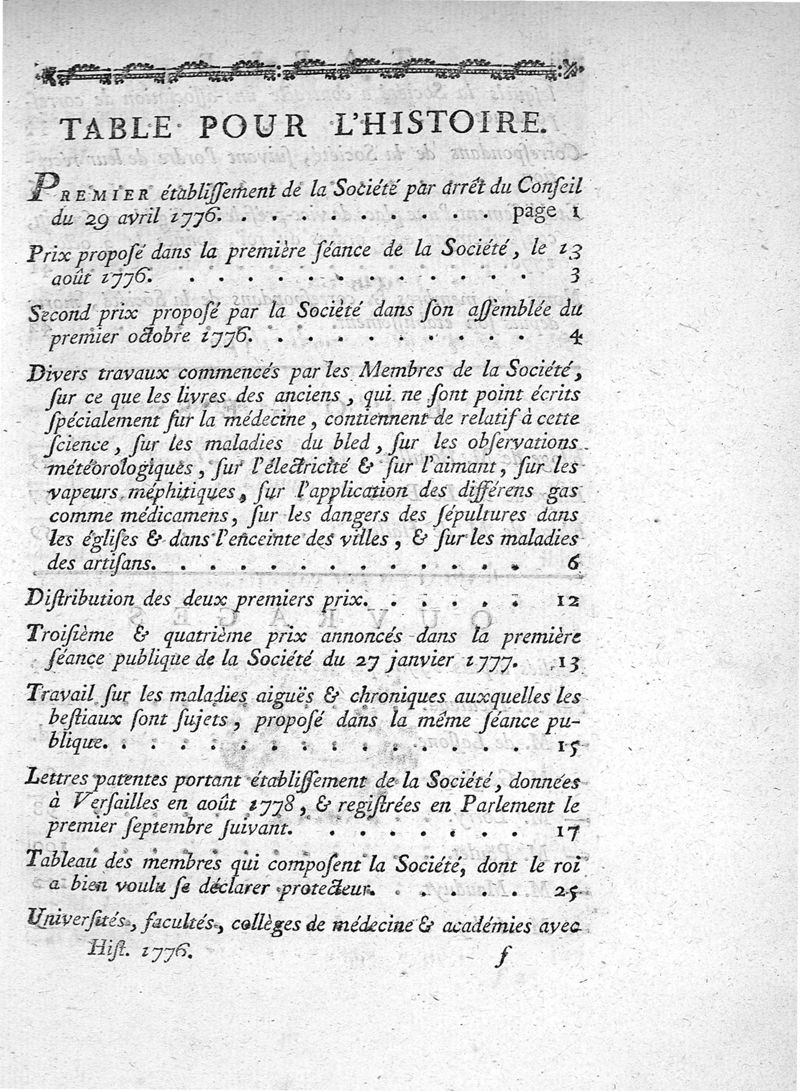 TABLE POUR L'HISTOIRE.
PREMIER établiſſement de la Société par arrêt du Conſeil
du 29 avril 1776. . . . . . . . . . page 1
Prix propoſé dans la première ſéance de la Société, le 13
août 1776. . . . . . . . . . . . . 3
Second prix propoſé par la Société dans ſon aſſemblée du
premier octobre 1776. . . . . . . . . . 4
Divers travaux commencés par les Membres de la Société,
ſur ce que les livres des anciens, qui ne ſont point écrits
ſpécialement ſur la médecine, contiennent de relatif à cette
ſcience, ſur les maladies du bled, ſur les obſervations
météorologiques, ſur l'électricité & ſur l'aimant, ſur les
vapeurs méphitiques, ſur l'application des différens gas
comme médicamens, ſur les dangers des ſépultures dans
les égliſes & dans l'enceinte des villes, & ſur les maladies
des artiſans. . . . . . . . . . . . . 6
Diſtribution des deux premiers prix. . . . . . 12
Troiſième & quatrième prix annoncés dans la première
ſéance publique de la Société du 27 janvier 1777. . 13
Travail ſur les maladies aiguës & chroniques auxquelles les
beſtiaux ſont ſujets, propoſé dans la même ſéance pu-
blique. . . . . . . . . . . . . . . 15
Lettres patentes portant établiſſement de la Société, données
à Verſailles en août 1778, & regiſtrées en Parlement le
premier ſeptembre ſuivant. . . . . . . . . 17
Tableau des membres qui compoſent la Société, dont le roi
a bien voulu ſe déclarer protecteur. . . . . . 25
Univerſités, facultés, collèges de médecine & académies avec
Hiſt. 1776. f